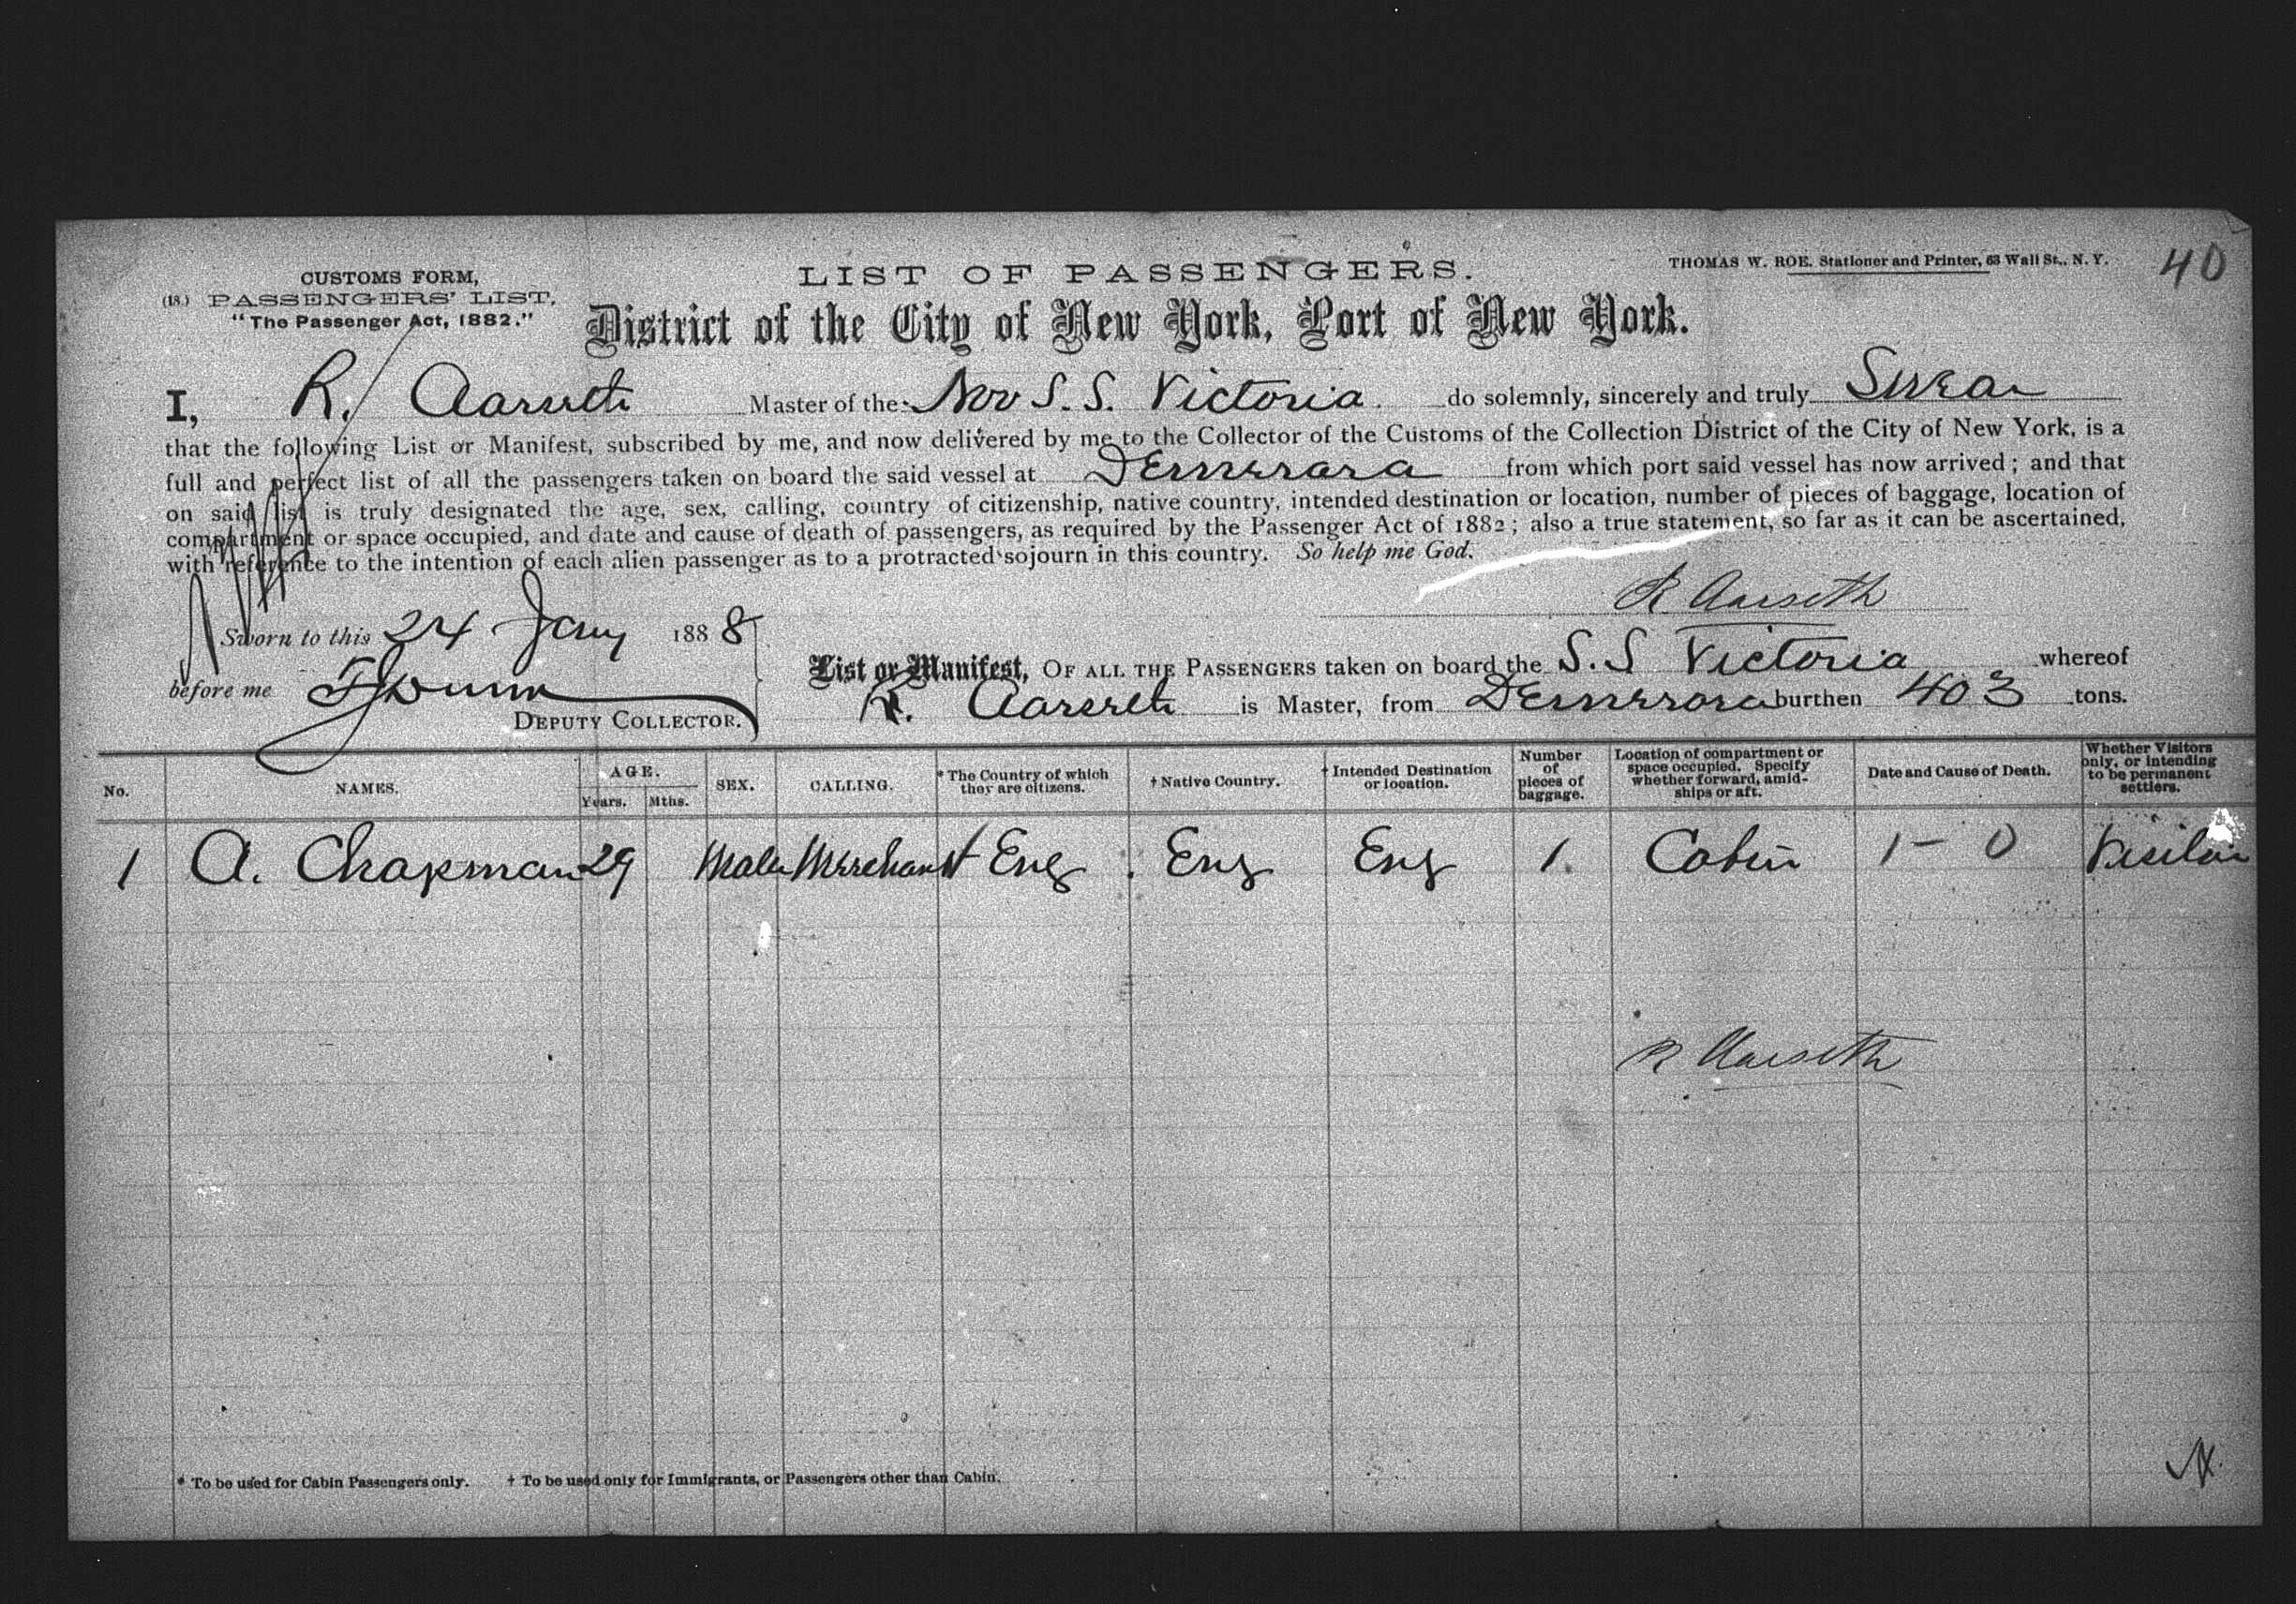 CUSTOMS FORM,
(18.) PASSENGERS' LIST.
"The Passenger Act, 1882."
LIST OF PASSENGERS.
THOMAS W. ROE, Stationer and Printer, 63 Wall St., N. Y.
40
District of the City of New York, Port of New York.
I, R. Aarseth Master of the Nor S. S. Victoria do solemnly, sincerely and truly Swear
that the following List or Manifest, subscribed by me, and now delivered by me to the Collector of the Customs of the Collection District of the City of New York, is a
full and perfect list of all the passengers taken on board the said vessel at Demerara from which port said vessel has now arrived; and that
on said list is truly designated the age, sex, calling, country of citizenship, native country, intended destination or location, number of pieces of baggage, location of
compartment or space occupied, and date and cause of death of passengers, as required by the Passenger Act of 1882; also a true statement, so far as it can be ascertained,
with reference to the intention of each alien passenger as to a protracted sojourn in this country. So help me God.
R Aarseth
Sworn to this 24 Jany 1888
before me
DEPUTY COLLECTOR.
List or Manifest, OF ALL THE PASSENGERS taken on board the S. S Victoria whereof
R. Aarseth is Master, from Demerara burthen 403 tons.
No. NAMES. AGE. Years. Mths. SEX. CALLING. * The Country of which they are citizens. † Native Country. † Intended Destination or location. Number of pieces of baggage. Location of compartment or space occupied. Specify whether forward, amidships or aft. Date and Cause of Death. Whether Visitors only, or intending to be permanent settlers.
1 A. Chapman 29 Male Merchant Eng Eng Eng 1. Cabin 1 - 0 Visitor
R Aarseth
* To be used for Cabin Passengers only. † To be used only for Immigrants, or Passengers other than Cabin.